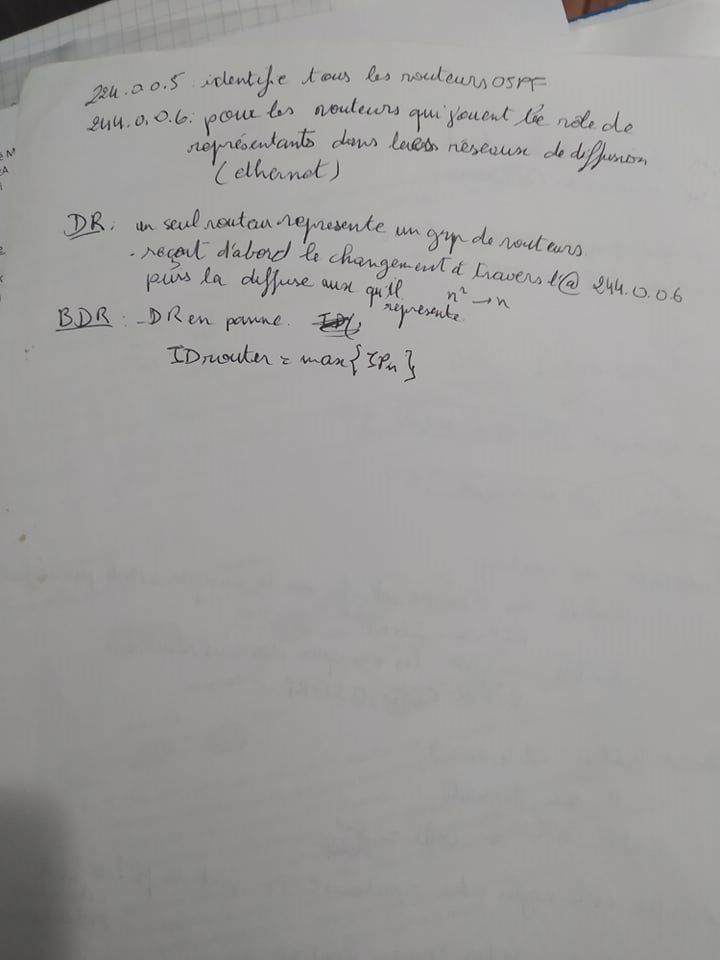 224.0.0.5 : identifie tous les routeurs OSPF
244.0.0.6 : pour les routeurs qui jouent le rôle de
représentants dans les réseaux de diffusion
(ethernet)
DR : un seul routeur represente un grp de routeurs.
- reçoit d'abord le changement à travers l'@ 244.0.0.6
puis la diffuse aux qu'il represente. n² → n
BDR : - DR en panne.
IDrouter = max{IPn}